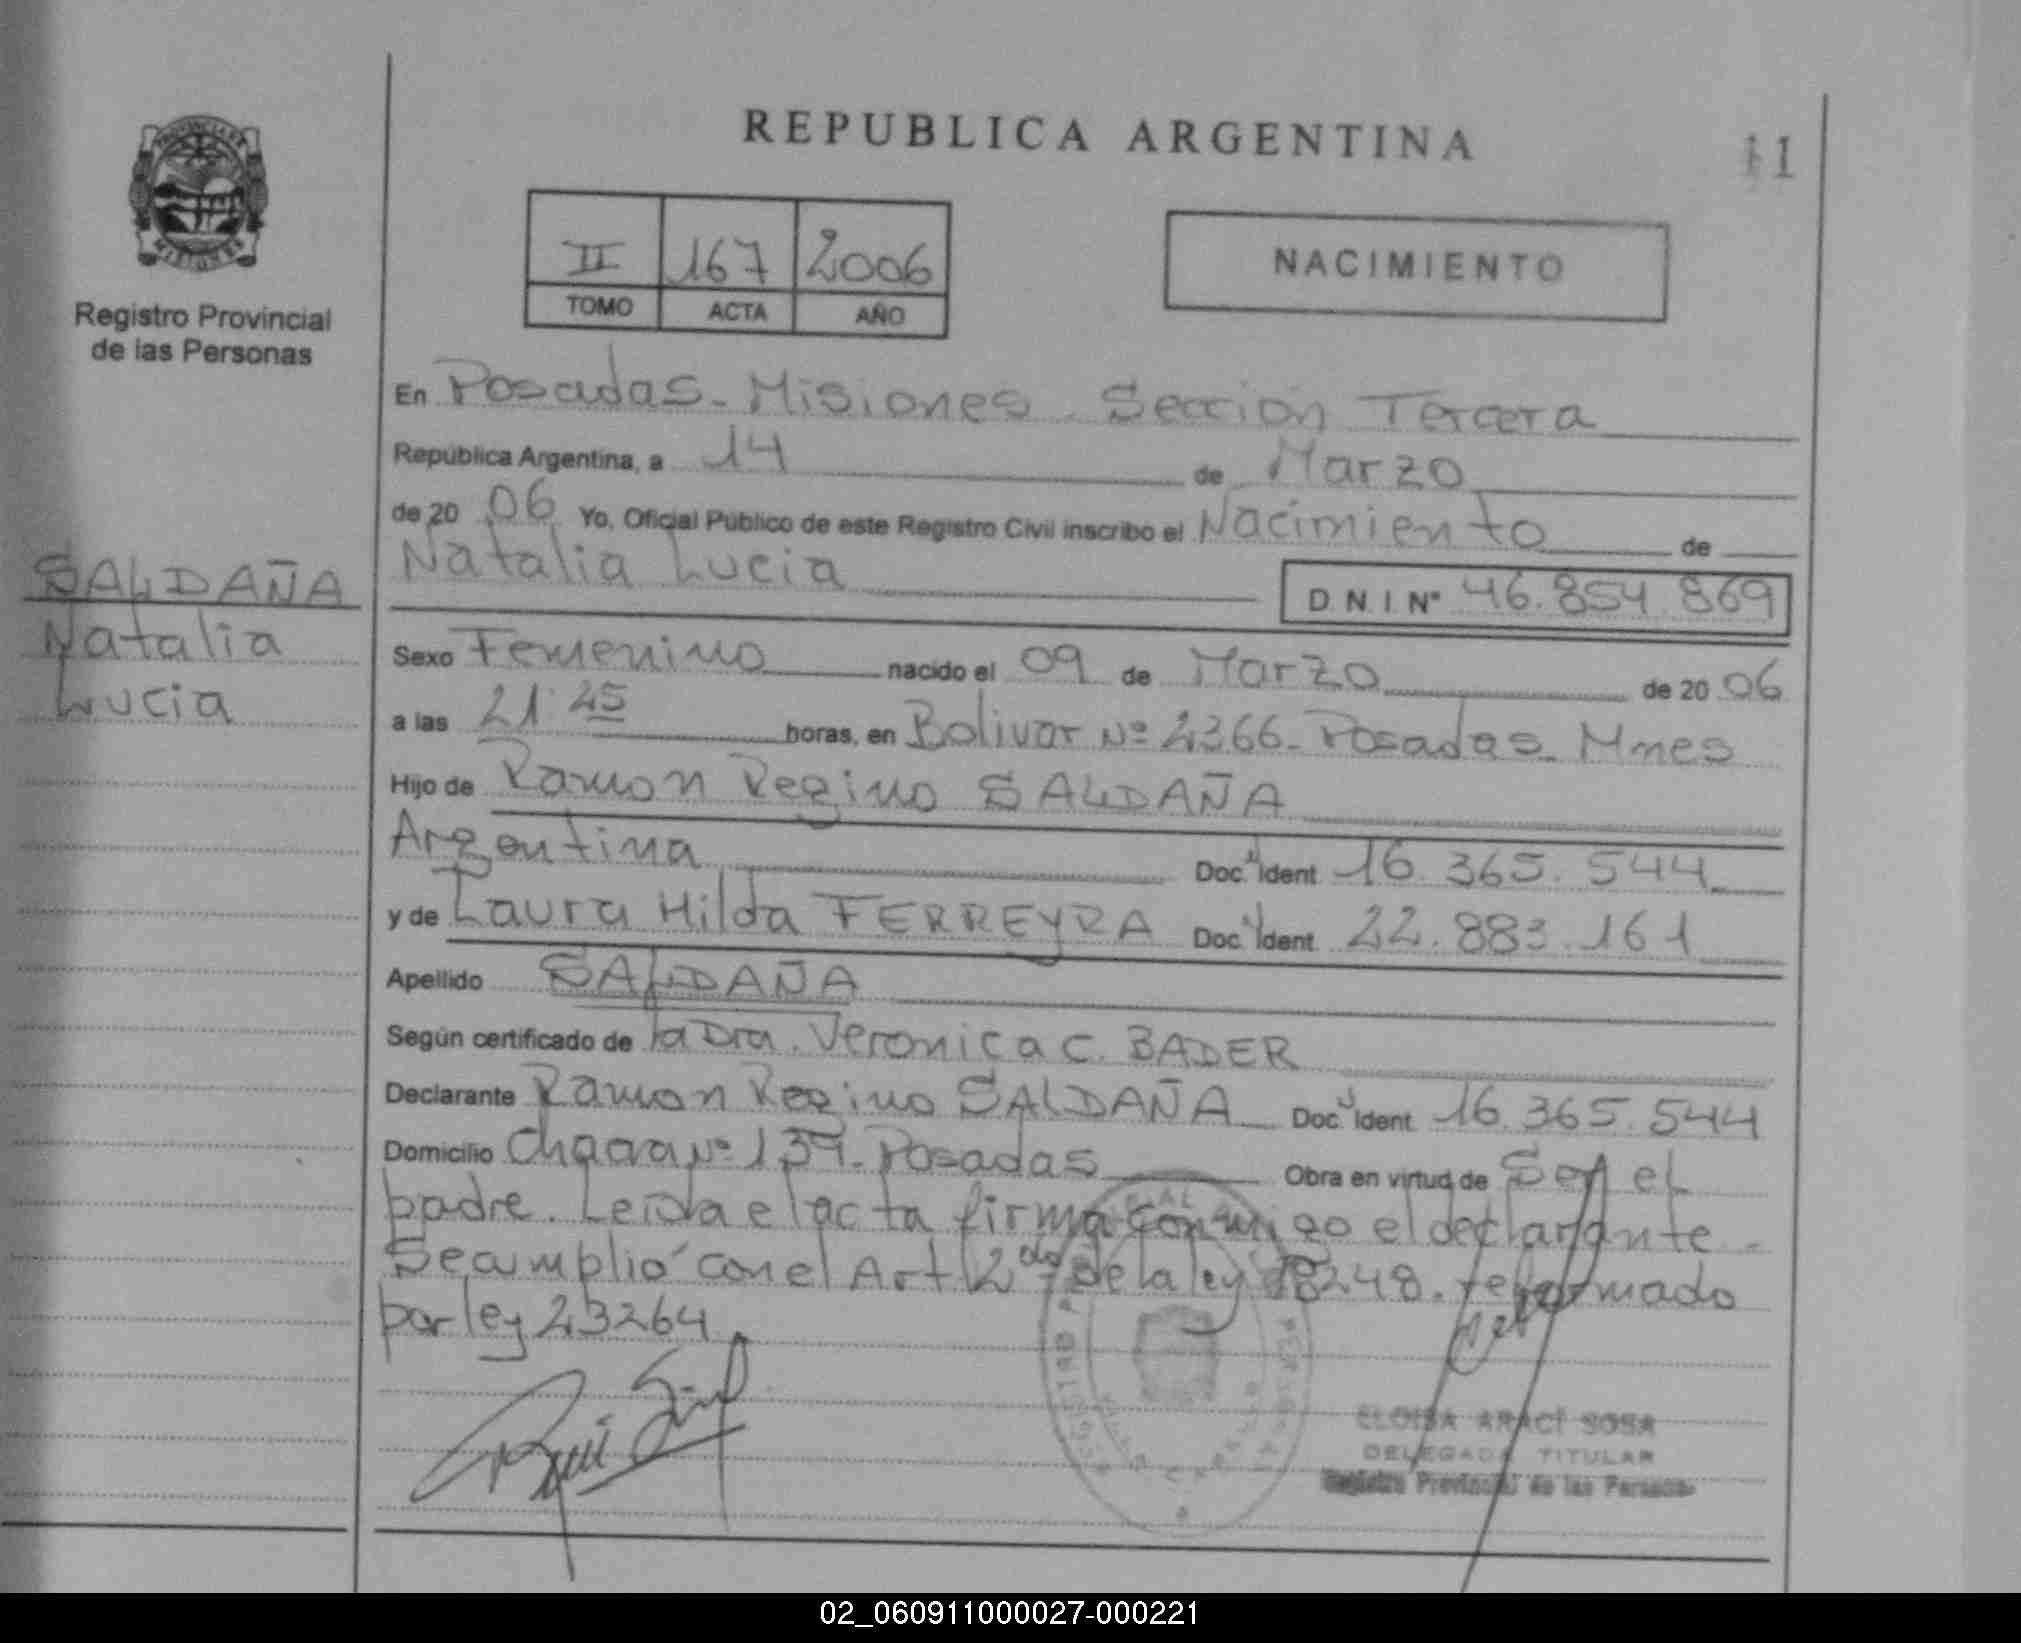 REPUBLICA ARGENTINA
11
PROVINCIA DE
MISIONES
Registro Provincial
de las Personas
II 167 2006
TOMO ACTA AÑO
NACIMIENTO
En Posadas - Misiones. Sección Tercera
República Argentina, a 14 de Marzo
de 20 06 Yo, Oficial Público de este Registro Civil inscribo el Nacimiento de
Natalia Lucia
D.N.I. Nº 46.854.869
SALDAÑA
Natalia
Lucia
Sexo Femenino nacido el 09 de Marzo de 20 06
a las 21:25 horas, en Bolivar Nº 2366 - Posadas - Mnes
Hijo de Ramon Regino SALDAÑA
Argentina Doc. Ident 16.365.544
y de Laura Hilda FERREYRA Doc. Ident. 22.883.161
Apellido SALDAÑA
Según certificado de la Dra. Veronica C. BADER
Declarante Ramon Regino SALDAÑA Doc. Ident 16.365.544
Domicilio Chacra Nº 139 - Posadas Obra en virtud de Ser el
padre. Leída el acta firma conmigo el declarante.
Se cumplió con el Art 2do de la ley 18248. reformado
por ley 23264
ELOISA ARACI SOSA
DELEGADA TITULAR
Registro Provincial de las Personas
02_060911000027-000221